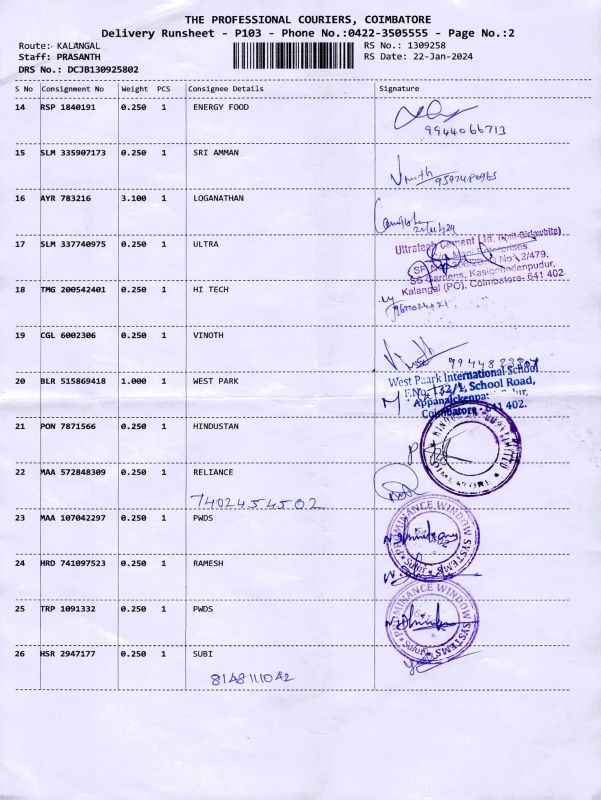 THE PROFESSIONAL COURIERS, COIMBATORE
Delivery Runsheet - P103 - Phone No.:0422-3505555 - Page No.:2
Route: KALANGAL
RS No.: 1309258
Staff: PRASANTH
RS Date: 22-Jan-2024
DRS No.: DCJB130925802
S No Consignment No Weight PCS Consignee Details Signature
14 RSP 1840191 0.250 1 ENERGY FOOD
9944066713
15 SLM 335907173 0.250 1 SRI AMMAN
16 AYR 783216 3.100 1 LOGANATHAN
17 SLM 337740975 0.250 1 ULTRA
Ultratech Cement Ltd. (Unit-Birlawhite)
SS Gardens, Kasigoundanpudur,
Kalangal (PO), Coimbatore- 641 402.
18 TMG 200542401 0.250 1 HI TECH
19 CGL 6002306 0.250 1 VINOTH
20 BLR 515869418 1.000 1 WEST PARK
West Paark International School
F.No. 132/1, School Road,
Coimbatore - 641 402.
21 PON 7871566 0.250 1 HINDUSTAN
COIMBATORE
22 MAA 572848309 0.250 1 RELIANCE
7402454502
23 MAA 107042297 0.250 1 PWDS
PROMINANCE WINDOW SYSTEMS
Sulur
24 HRD 741097523 0.250 1 RAMESH
25 TRP 1091332 0.250 1 PWDS
PROMINANCE WINDOW SYSTEMS
Sulur
26 HSR 2947177 0.250 1 SUBI
8148111042